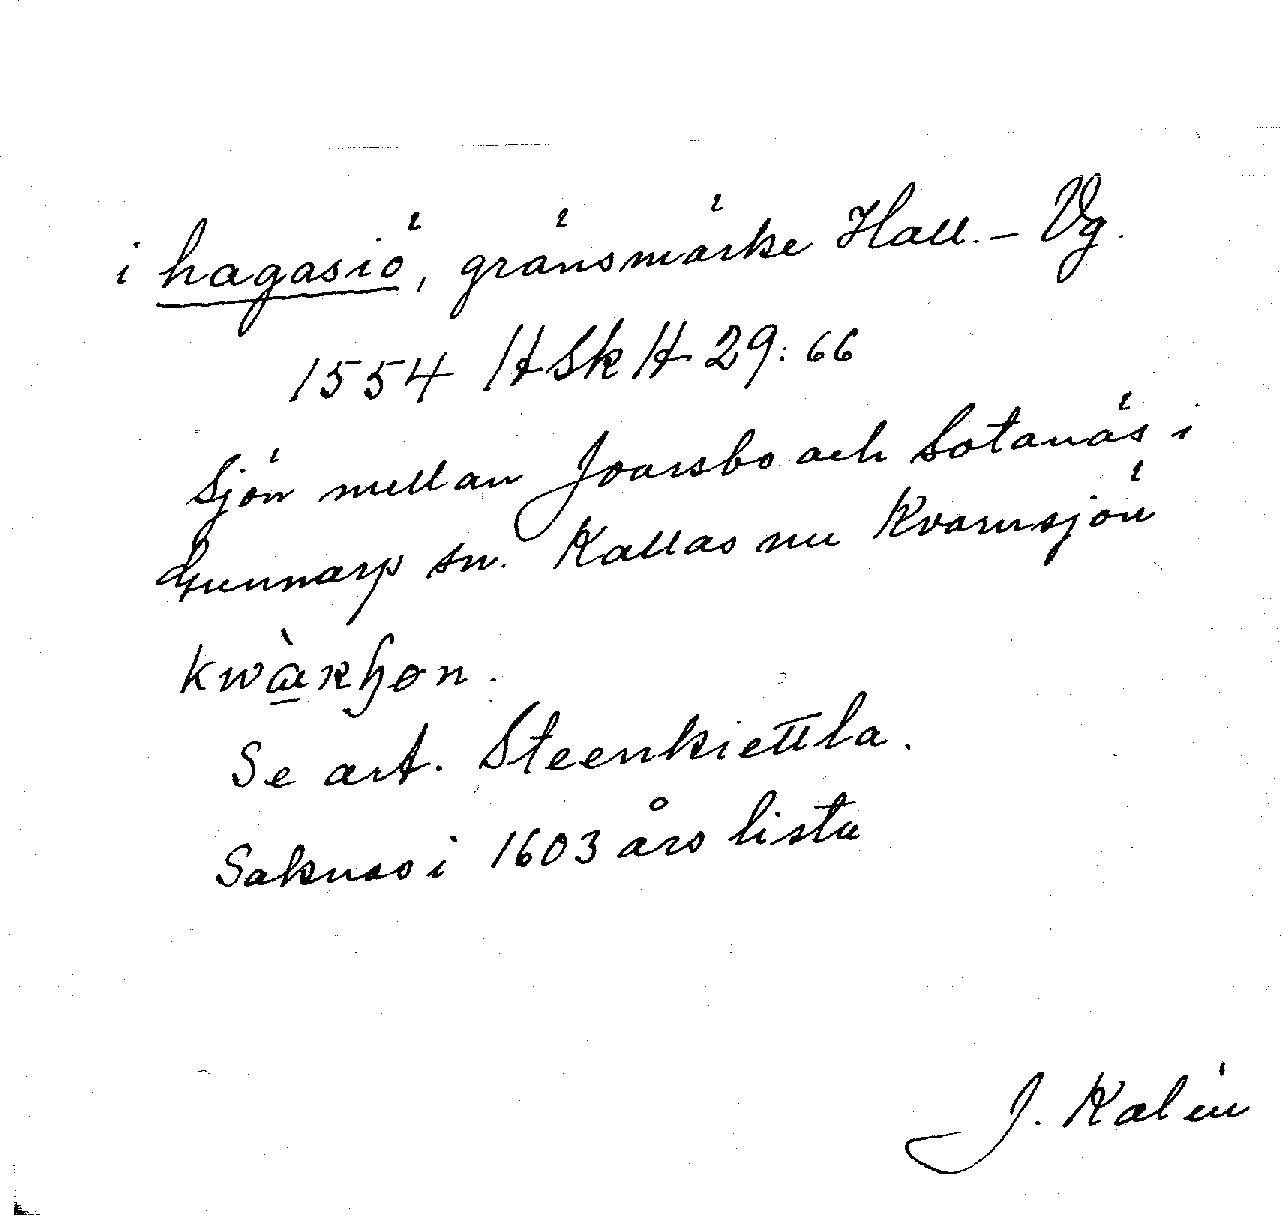 i hagasiö, gränsmärke Hall. – Vg.
1554 HSkH 29:66
Sjön mellan Joarsbo och Sotanäs i
Gunnarp sn. Kallas nu Kvarnsjön
kwàrɧøn.
Se art. Steenkiettla.
Saknas i 1603 års lista
J. Kalén